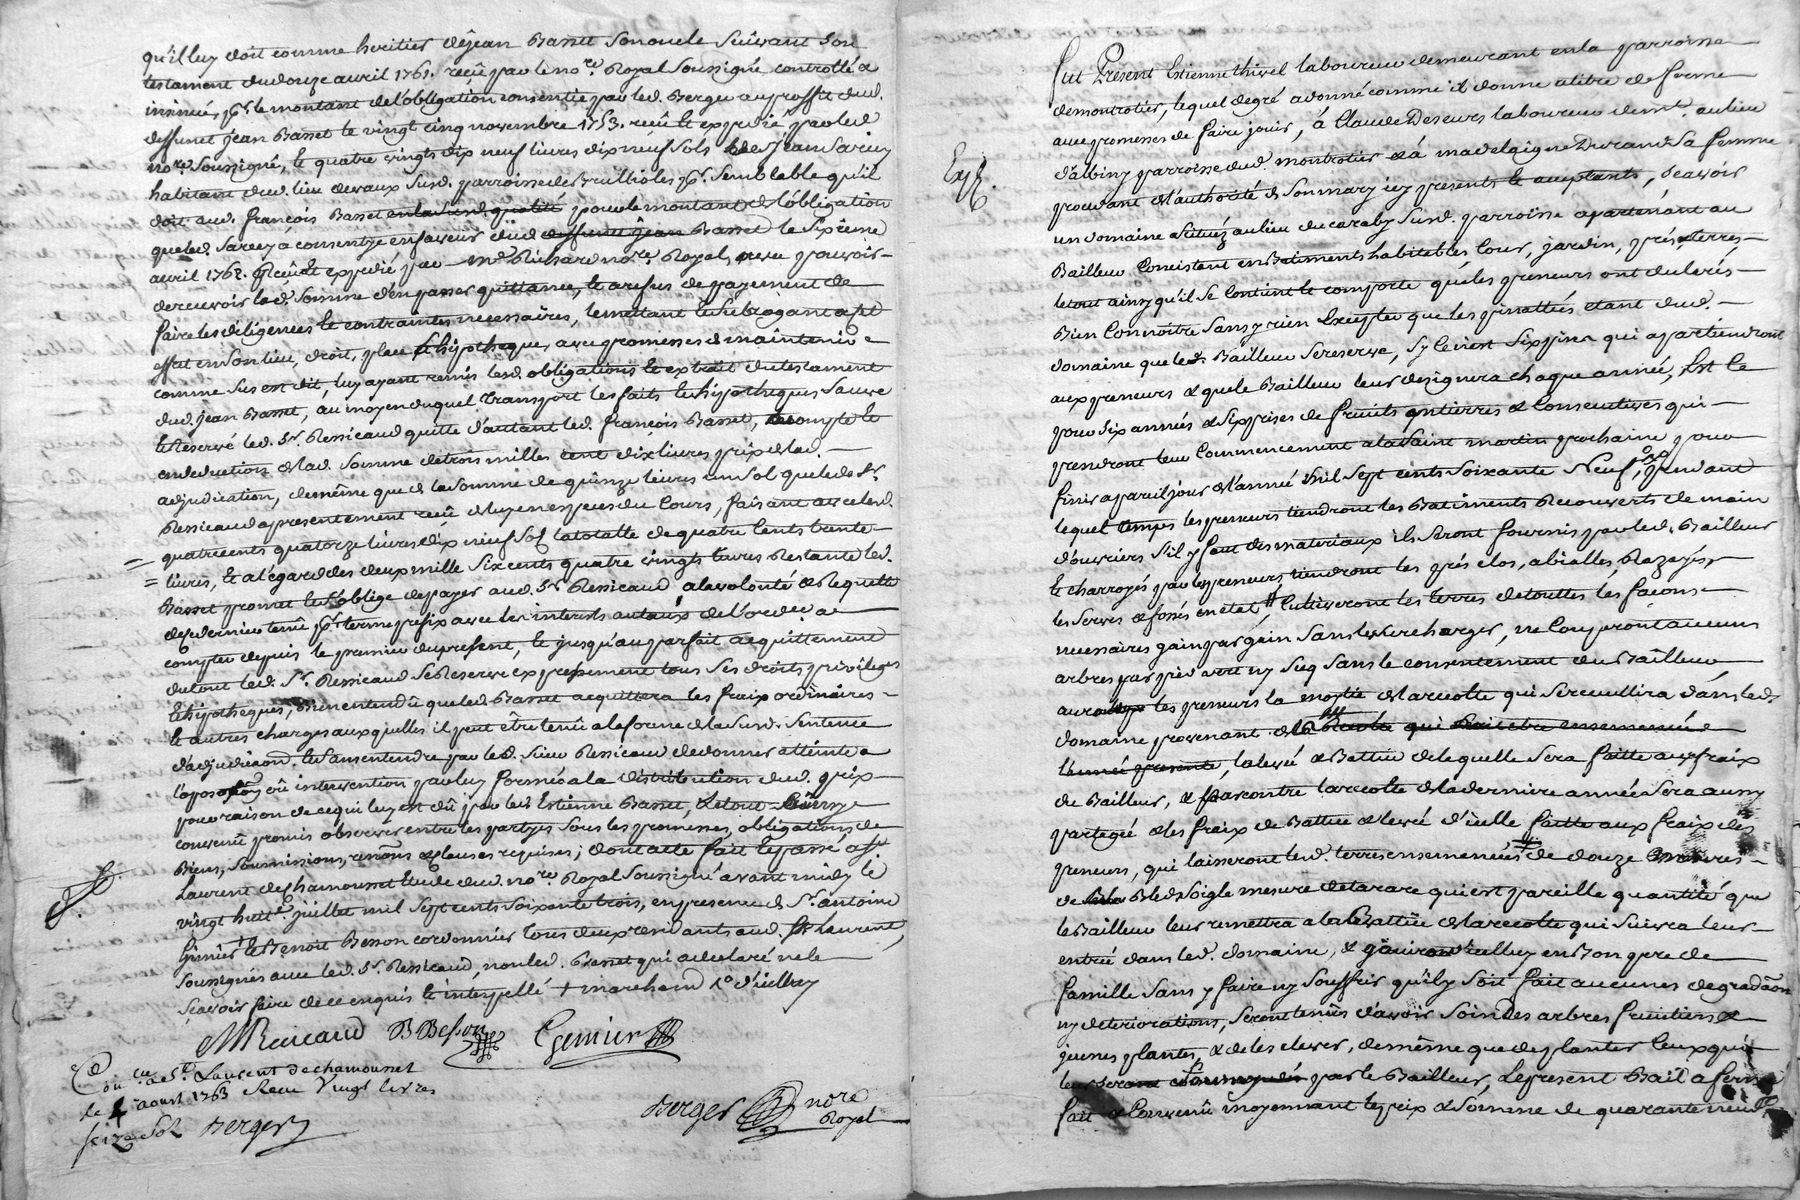 qu'il luy doit comme heritier de jean Basset son oncle suivant son
testament du douze avril 1761. reçû par le nore. Royal soussigné controllé &
insinué, pr. le montant de l'obligation consentie par led. Berger au proffit dud.
deffunct jean Basset le vingt cinq novembre 1753. reçû et expedié par led
nore. soussigné, et quatre vingts dix neuf livres dix neuf sols de Jean Sarcey
habitant dud. lieu de vaux susd. parroisse de Brullioles pr. semblable qu'il
doit aud. françois Basset en lasusd. qualité pour le montant de l'obligation
que led. Sarcey a consentye en faveur dud deffunct jean Basset le sixieme
avril 1762. Reçûe et expedié par Me Richard nore. Royal, avec pouvoir
de recevoir lad. somme d'en passer quittance, et au refus de payement de
faire les diligences et contraintes necessaires, le mettant et subrogeant a cet
effet en son lieu, droit, place et hipotheque, avec promesses de maintenir
comme sus est dit, luy ayant remis lesd. obligations et extrait du testament
dud. jean Basset, au moyen duquel transport les faits et hipotheques sauve
et reservé led. Sr. Ressicaud quitte d'autant led. françois Basset, a compte et
en deduction de lad. somme de trois milles cent dix livres prix de lad.
adjudication, de même que de la somme de quinze livres un sol que led. Sr.
Ressicaud a presentement reçû de luy en especes du Cours, faisant avec lesd.
quatre cents quatorze livres dix neuf sols la totalle de quatre cents trente
livres, et a l'egard des deux mille six cents quatre vingts livres restante led.
Basset promet et s'oblige de payer aud. Sr. Ressicaud a la volonté & requette
de ce dernier tenû pr. terme prefix avec les interets au taux de l'ordce. a
compter depuis le premier du present, et jusqu'au parfait acquittement
du tout led. Sr. Ressicaud se reserve expressement tous ses droits privileges
et hipotheques, bien entendû que led Basset acquittera les fraix ordinaires
et autres charges auxquelles il peut être tenû a la forme de la susd. sentence
d'adjudication, et sans entendre par led. Sieur Ressicaud de donner atteinte a
l'oposition oû intervention par luy formée a la distribution dud. prix
pour raison de ce qui luy est dû par led. Estienne Basset, Le tout ainsy
convenû promis observer entre les partyes sous les promesses, obligations de
Biens, soumissions, renôns & clauses requises; dont acte fait et passé a St.
Laurent de Chamousset Etude dud. nore. Royal soussigné avant midy le
vingt huite. juillet mil sept cents soixante trois, en presence de Sr. antoine
Genier + et Benoit Besson cordonnier tous deux residants aud. St. Laurent,
soussignés avec led. Sr. Ressicaud, non led. Basset qui a declaré ne le
sçavoir faire de ce enquis et interpellé + marchand
MRessicaud BBesson Genier
Con.lé a St. Laurent de chamousset
le 4 aoust 1763 Recu Vingt livres
seize sol Bergery
Berger nore
Royal
Fut Present Estienne thivel laboureur demeurant en la parroisse
de montrotier, lequel de gré a donné comme il donne a titre de ferme
avec promesses de faire jouir, à Claude Deseurs laboureur demt. au lieu
Exp.
d'albiny parroisse dud. montrotier & à madelaigne Durand sa femme
procedant de l'authorité de son mary icy presents et acceptants, sçavoir
un domaine situéz au lieu du caraby susd. parroisse apartenant au
Bailleur Consistant en Batiments habitables, Cour, jardin, prés & terres,
le tout ainsy qu'il se Contient et comporte que les preneurs ont du les és
Bien Connoitre sans y rien Excepter que les pinattés etant dud.
domaine que led. Bailleur se reserve, sy le n'est six pins qui apartiendront
aux preneurs & que le Bailleur leur designera chaque année, Et ce
pour six années & six prises de fruits entierres & Consecutives qui
prendront leur Commencement a la Saint martin prochaine pour
finir a pareil jour de l'année mil sept cents soixante Neuf, pendant
lequel temps les preneurs tiendront les Batiments Recouverts de main
d'ouvriers s'il y faut des materiaux ils seront fournis par led. Bailleur
et charroyés par les preneurs, tiendront les prés clos, abiallés, Razeyés,
les serves & fossés en etat, # Cultiveront les terres de touttes les façons
necessaires gain par gain sans les surcharger, ne Couperont aucuns
arbres par pied vert ny sec sans le consentement du Bailleur,
auront les preneurs la moytié de la recolte qui se recueillira dans led.
domaine provenant de la Recolte qui doit etre ensemencée
l'année presente, la levée & Battüe de laquelle sera faitte aux fraix
du Bailleur, & par contre la recolte de la derniere année sera aussy
partagée & les fraix de Battüe & levée d'icelle faitte aux fraix des
preneurs, qui laisseront led. terres ensemencées de douze mesures
de Bled soigle mesure de tarare qui est pareille quantité que
le Bailleur leur remettra a la Battüe de la recolte qui suivra leur
entrée dans led. domaine, & jouiront d'icelluy en bon pere de
famille sans y faire ny souffrir qu'il y soit fait aucunes degradâon
ny deteriorations, seront tenus d'avoir soin des arbres fruitiers &
jeunes plantes, & de les elever, de même que de planter ceux qui
leur seront fournis par le Bailleur, Le present Bail a ferme
fait & Convenû moyennant le prix & somme de quarante neuf